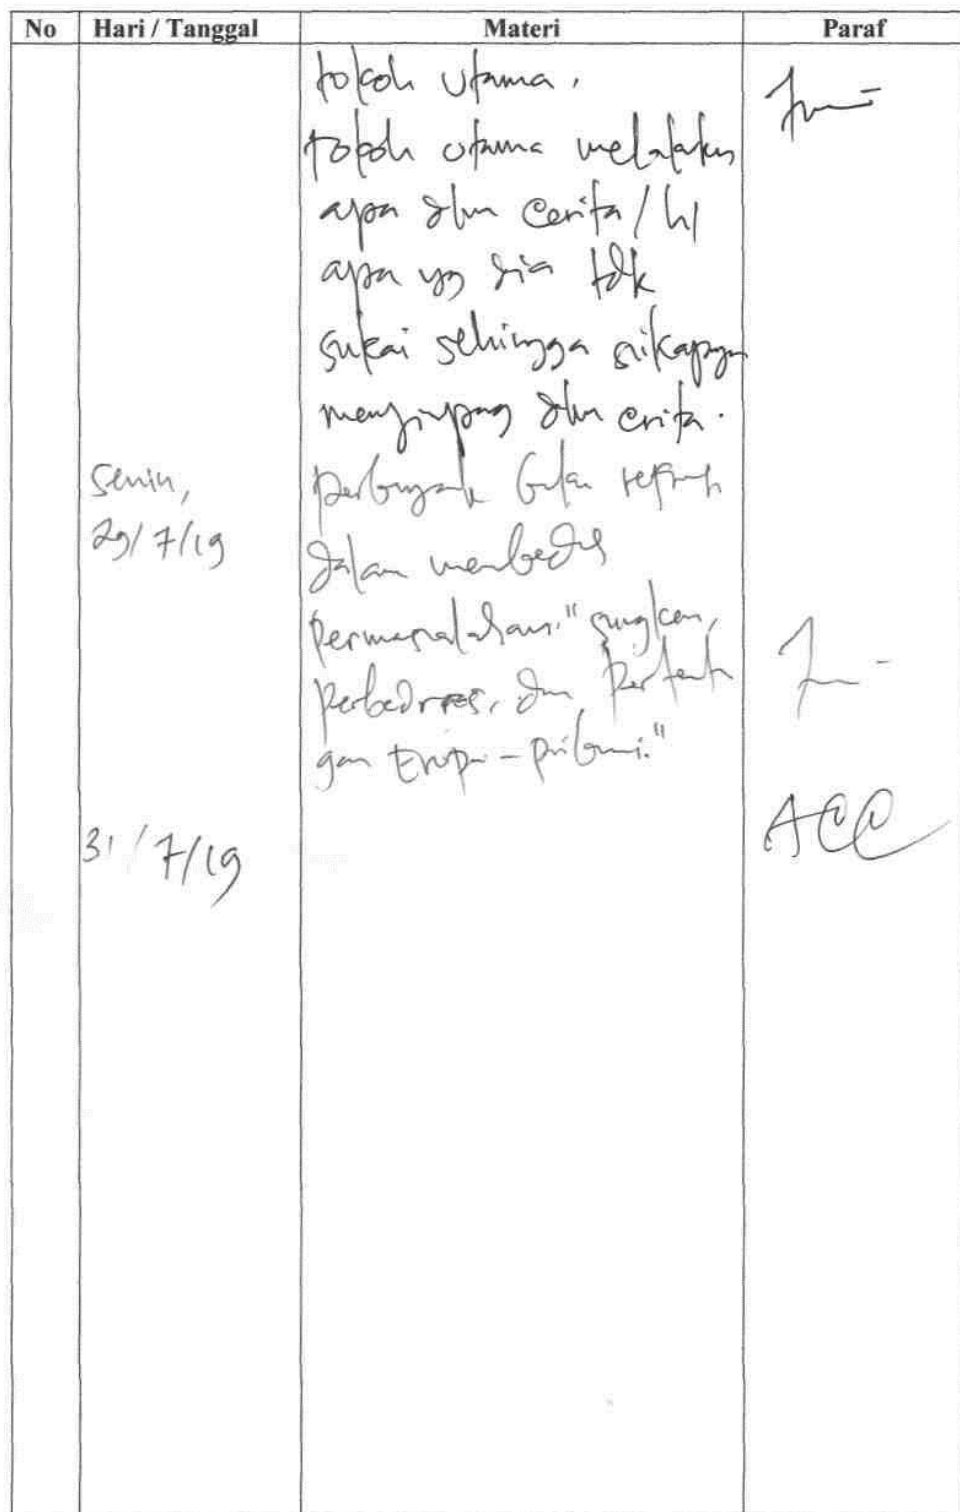 No Hari / Tanggal Materi Paraf
tokoh utama.
tokoh utama melakukan
apa dlm cerita / hl
apa yg dia tdk
sukai sehingga sikapnya
menyimpang dlm cerita.
Senin, perbanyak buku
29/7/19 dalam membedah
permasalahan."
perbedaan, dan pertent
gan Eropa - pribumi."
ACC
31/7/19